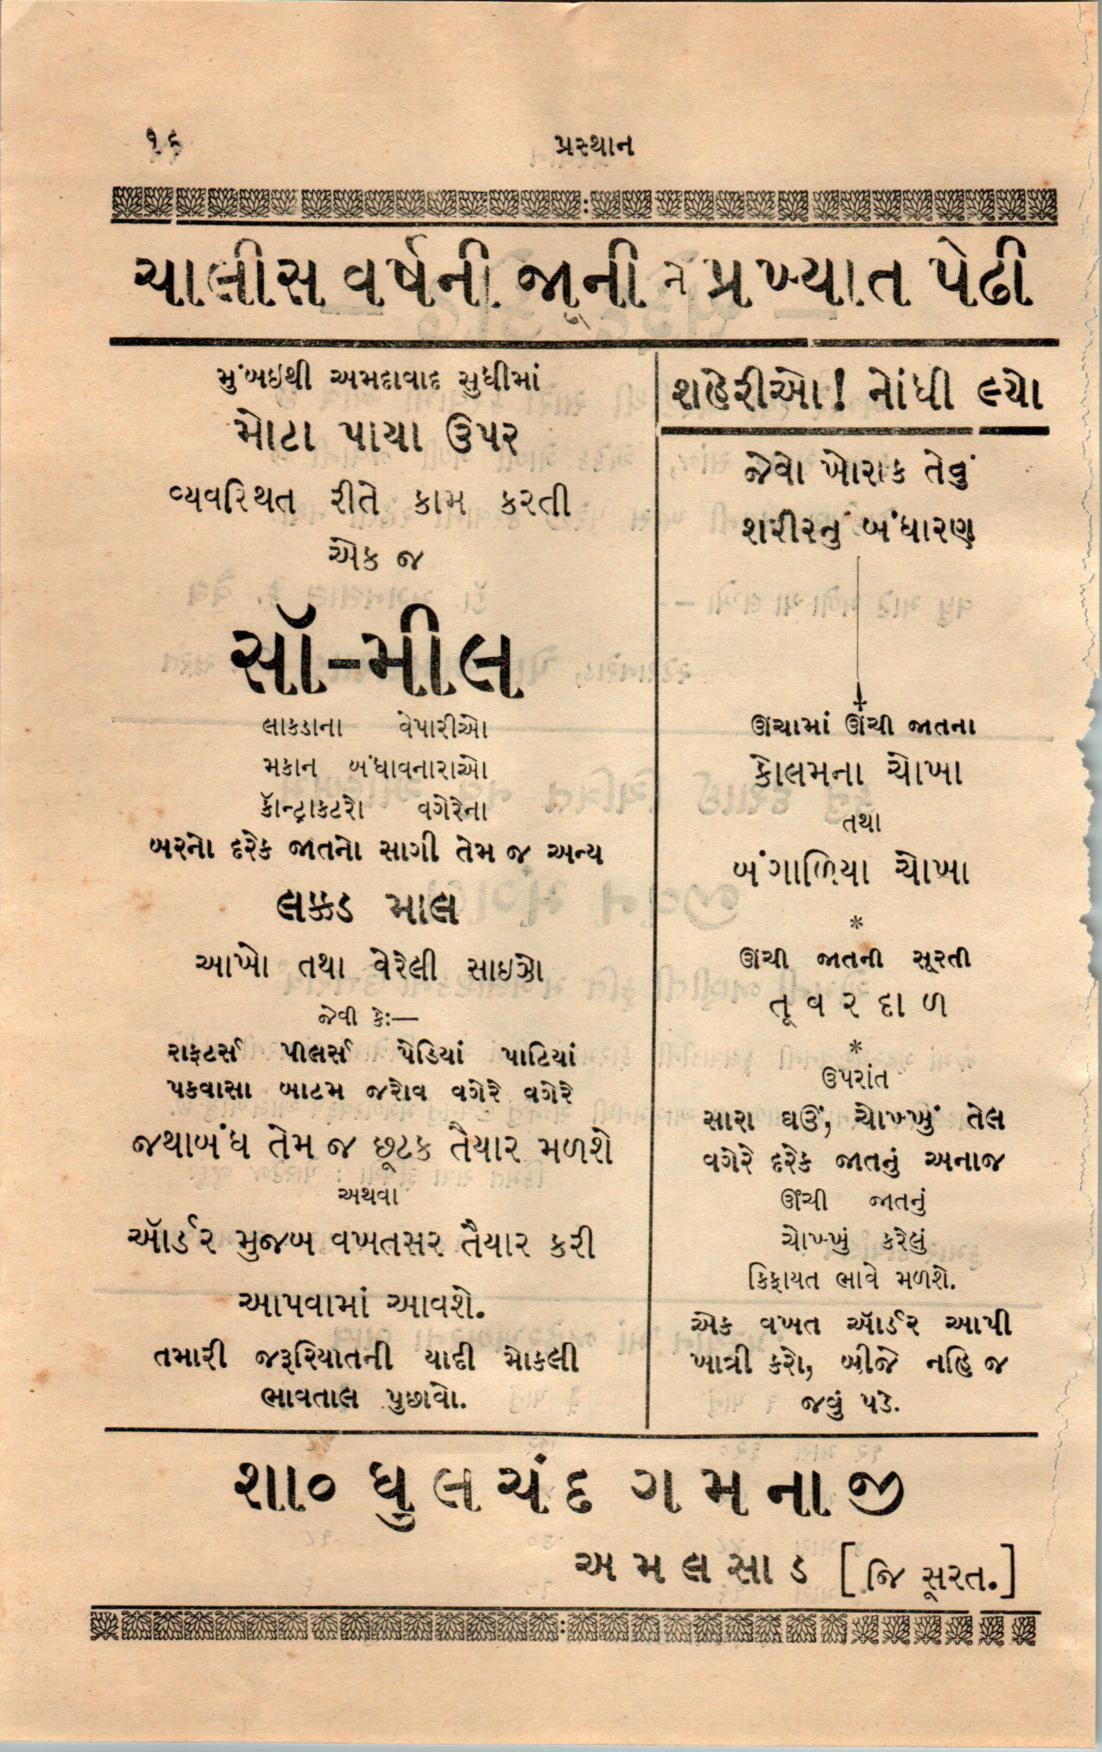 ૧૬
પ્રસ્થાન
ચાલીસ વર્ષની જૂની ને પ્રખ્યાત પેઢી
મુંબઇથી અમદાવાદ સુધીમાં
મોટા પાયા ઉપર
વ્યવસ્થિત રીતે કામ કરતી
એક જ
સૉ-મીલ
લાકડાના વેપારીઓ
મકાન બંધાવનારાઓ
કૉન્ટ્રાકટરો વગેરેના
બરનો દરેક જાતનો સાગી તેમ જ અન્ય
લક્કડ માલ
આખો તથા વેરેલી સાઇઝો
જેવી કે:—
રાફટર્સ પીલર્સ પેડિયાં પાટિયાં
પકવાસા બાટમ જરોવ વગેરે વગેરે
જથાબંધ તેમ જ છૂટક તૈયાર મળશે
અથવા
ઑર્ડર મુજબ વખતસર તૈયાર કરી
આપવામાં આવશે.
તમારી જરૂરિયાતની યાદી મોકલી
ભાવતાલ પુછાવો.
શહેરીઓ! નોંધી લ્યો
જેવો ખોરાક તેવું
શરીરનું બંધારણ
ઊંચામાં ઊંચી જાતના
કોલમના ચોખા
તથા
બંગાળિયા ચોખા
*
ઊંચી જાતની સૂરતી
તૂવરદાળ
*
ઉપરાંત
સારા ઘઉં, ચોખ્ખું તેલ
વગેરે દરેક જાતનું અનાજ
ઊંચી જાતનું
ચોખ્ખું કરેલું
કિફાયત ભાવે મળશે.
એક વખત ઑર્ડર આપી
ખાત્રી કરો, બીજે નહિ જ
જવું પડે.
શા૦ ધુલચંદ ગમનાજી
અમલસાડ [જિ સૂરત.]